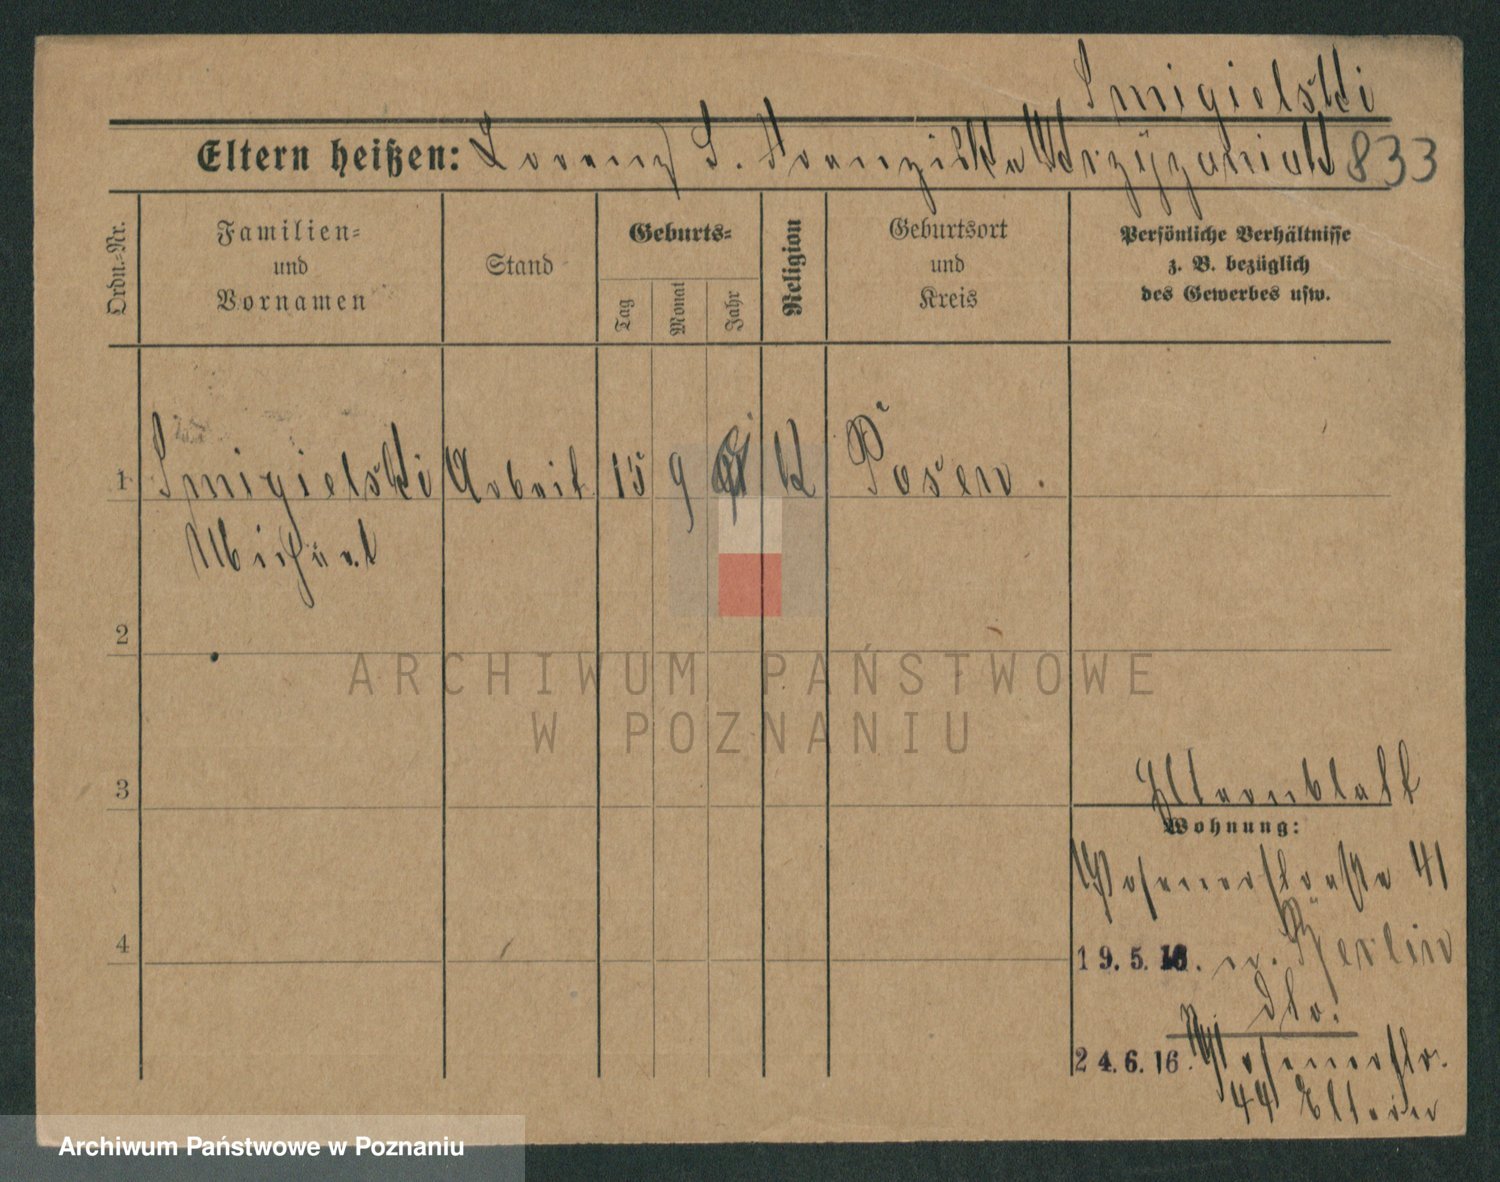 Smigielski
Eltern heißen: Lorenz S. Franziska Krzyżaniak 833
Ordn.-Nr.
Familien-
und
Vornamen
Stand
Geburts-
Tag
Monat
Jahr
Religion
Geburtsort
und
Kreis
Persönliche Verhältnisse
z. B. bezüglich
des Gewerbes usw.
1 Smigielski Arbeit. 15 9 K Posen.
Michael
2
3
4
Elternblatt
Wohnung:
Posenerstraße 41
19.5.16. n. Berlin
24.6.16. Posenerstr.
44 Eltern
ARCHIWUM PAŃSTWOWE
W POZNANIU
Archiwum Państwowe w Poznaniu